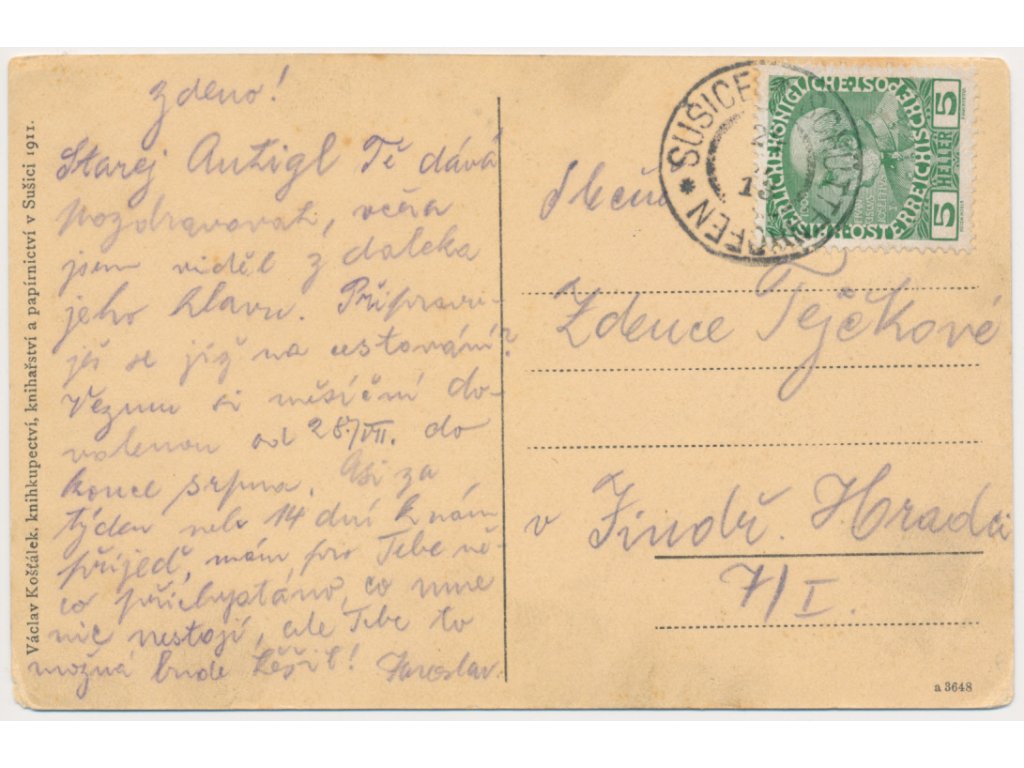 Zdeno!
Starej Antigl Tě dává
pozdravovati, včera
jsem viděl z daleka
jeho hlavu. Připravu-
ješ se již na cestování?
Vezmu si měsíční do-
volenou od 28./VII. do
konce srpna. Asi za
týden neb 14 dní k nám
přijeď, mám pro Tebe ně-
co přichystáno, co mne
nic nestojí, ale Tebe to
možná bude těšit! Jaroslav.
Václav Košťálek, knihkupectví, knihařství a papírnictví v Sušici 1911.
SUŠICE
HOFEN
13
5 HELLER 5
Slečna
Zdence Tejčkové
v Jindř. Hradci
7/I.
a 3648